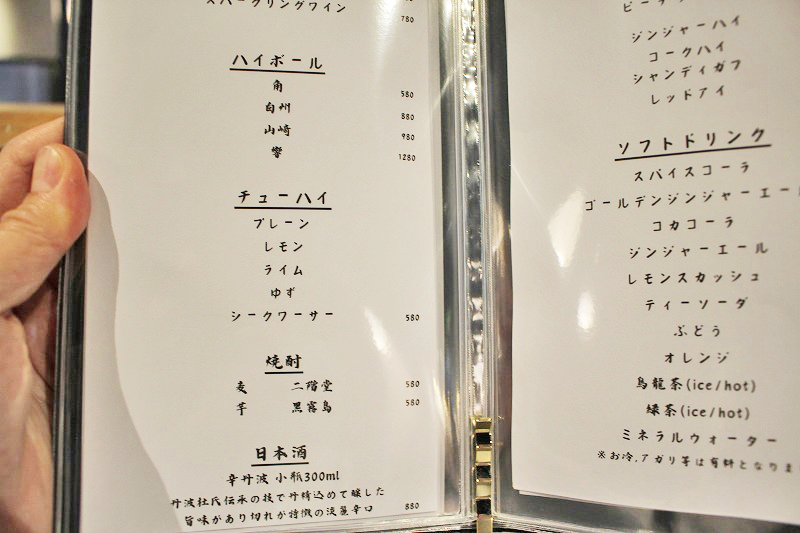 スパークリングワイン 780
ハイボール
角 580
白州 880
山崎 980
響 1280
チューハイ
プレーン
レモン
ライム
ゆず
シークワーサー 580
焼酎
麦 二階堂 580
芋 黒霧島 580
日本酒
辛丹波 小瓶300ml
丹波杜氏伝承の技で丹精込めて醸した
旨味があり切れが特徴の淡麗辛口 880
ジンジャーハイ
コークハイ
シャンディガフ
レッドアイ
ソフトドリンク
スパイスコーラ
ゴールデンジンジャーエール
コカコーラ
ジンジャーエール
レモンスカッシュ
ティーソーダ
ぶどう
オレンジ
烏龍茶(ice/hot)
緑茶(ice/hot)
ミネラルウォーター
※お冷,アガリ等は有料となりま